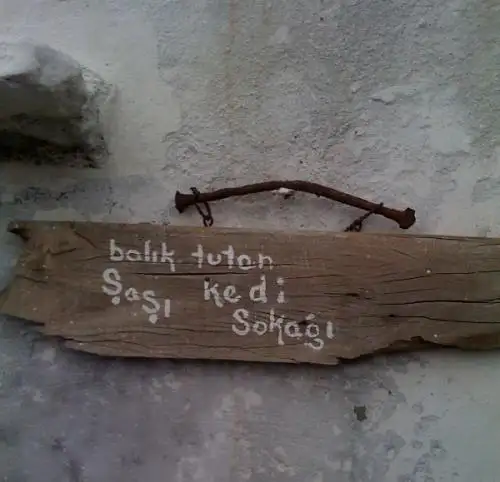 balık tutan
ŞaŞı kedi
Sokağı